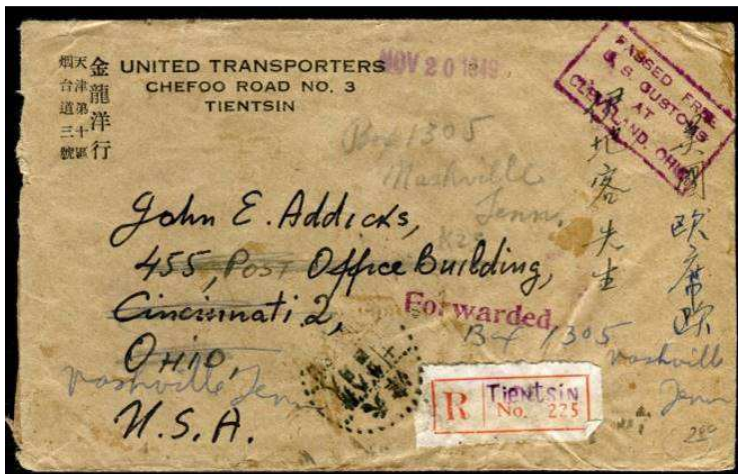 金龍洋行
天津第十區
烟台道三號
UNITED TRANSPORTERS
CHEFOO ROAD NO. 3
TIENTSIN
NOV 20 1949
PASSED FREE
U.S. CUSTOMS
AT
CLEVELAND, OHIO
Box 1305
Nashville
Tenn.
John E. Addicks,
455, Post Office Building,
Cincinnati 2,
OHIO,
U.S.A.
Forwarded
Box 1305
Nashville
Tenn
Nashville Tenn
美國欧席欧
地客先生
R
Tientsin
No. 225